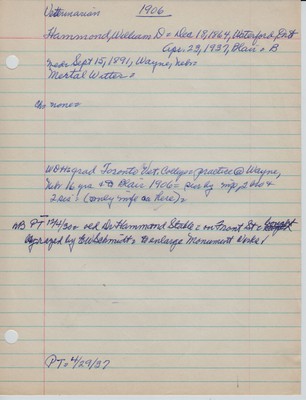 Veterinarian 1906
Hammond, William D = Dec 18, 1864, Waterford, Ont
Apr. 23, 1937, Blair = B
Mar Sept 15, 1891, Wayne, Nebr
Mertal Witter =
Ch none =
WDH grad Toronto Vet. College = practice @ Wayne,
Neb 16 yrs & to Blair 1906 = sur by wife, 2 bro &
2 sis = (only wife as here) =
NB PT old Dr Hammond Stable = on Front St =
razed by EW Schmidt = to enlarge Monument Works
PT = 4/29/37